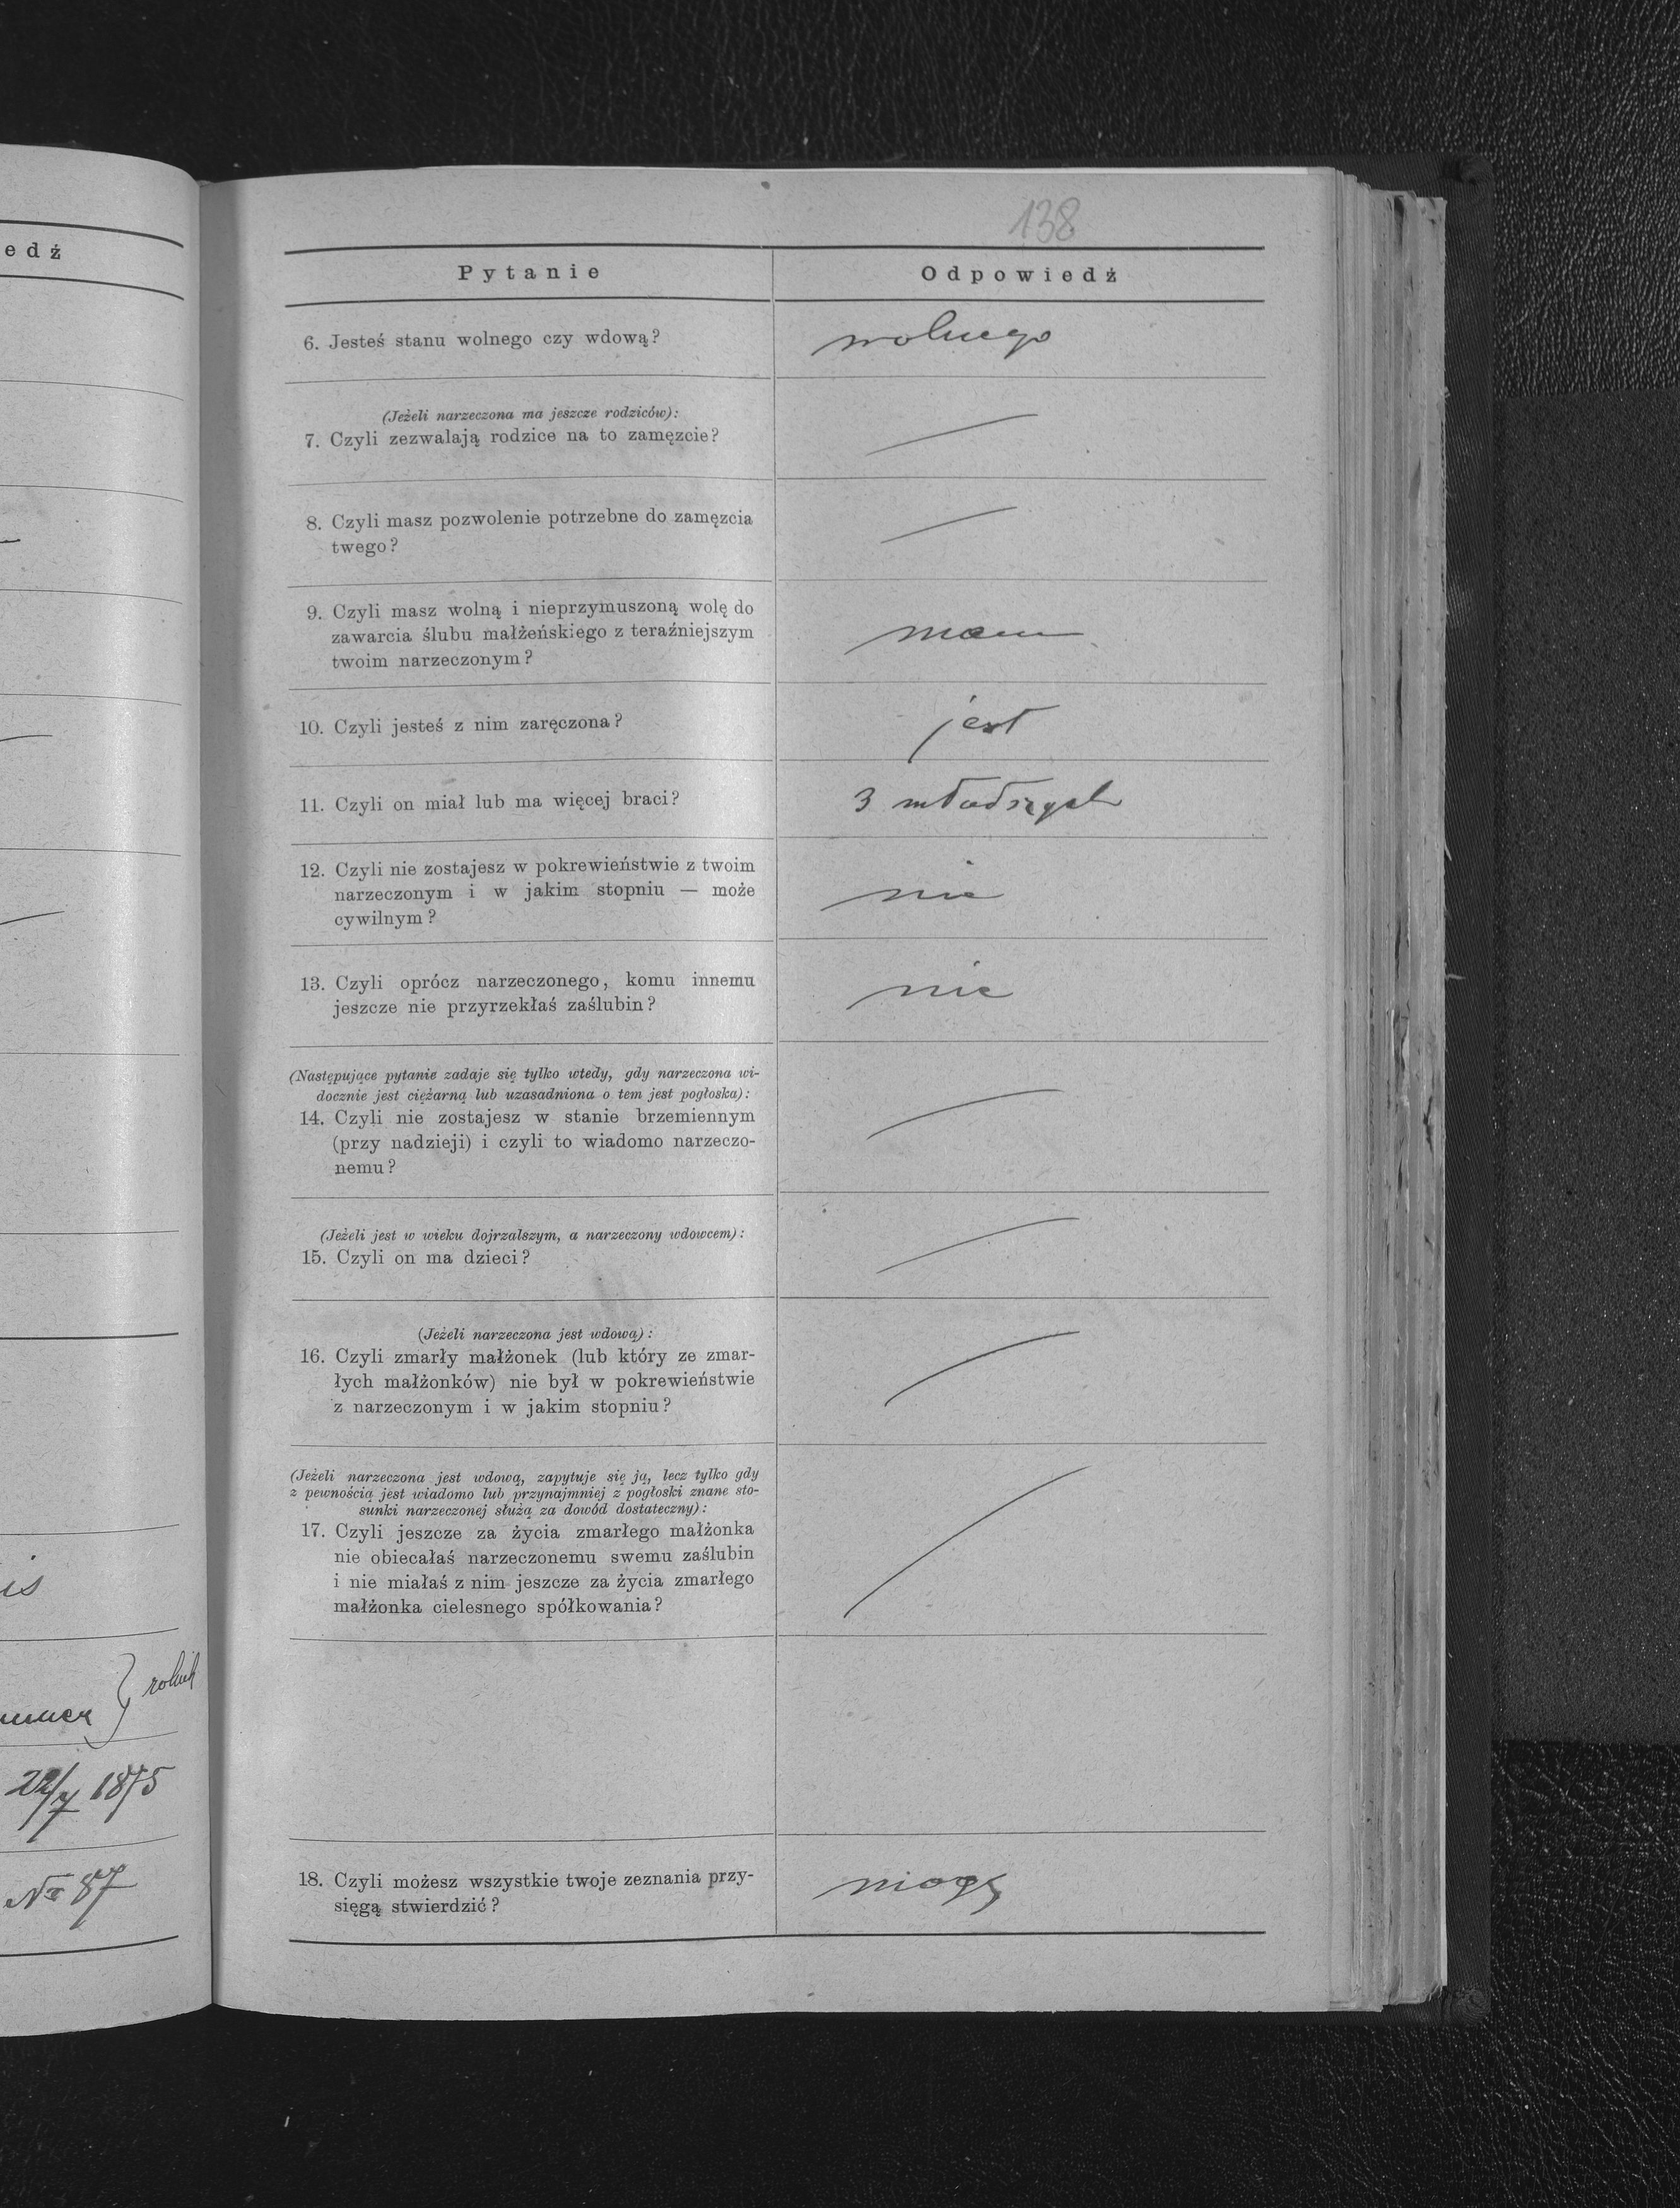 edź
is
rolnik
22/7 1875
No 87
138
Pytanie
Odpowiedź
6. Jesteś stanu wolnego czy wdową?
wolnego
(Jeżeli narzeczona ma jeszcze rodziców):
7. Czyli zezwalają rodzice na to zamęzcie?
8. Czyli masz pozwolenie potrzebne do zamęzcia
twego?
9. Czyli masz wolną i nieprzymuszoną wolę do
zawarcia ślubu małżeńskiego z teraźniejszym
twoim narzeczonym?
mam
10. Czyli jesteś z nim zaręczona?
jest
11. Czyli on miał lub ma więcej braci?
3 młodszych
12. Czyli nie zostajesz w pokrewieństwie z twoim
narzeczonym i w jakim stopniu — może
cywilnym?
nie
13. Czyli oprócz narzeczonego, komu innemu
jeszcze nie przyrzekłaś zaślubin?
nie
(Następujące pytanie zadaje się tylko wtedy, gdy narzeczona wi-
docznie jest ciężarną lub uzasadniona o tem jest pogłoska):
14. Czyli nie zostajesz w stanie brzemiennym
(przy nadzieji) i czyli to wiadomo narzeczo-
nemu?
(Jeżeli jest w wieku dojrzalszym, a narzeczony wdowcem):
15. Czyli on ma dzieci?
(Jeżeli narzeczona jest wdową):
16. Czyli zmarły małżonek (lub który ze zmar-
łych małżonków) nie był w pokrewieństwie
z narzeczonym i w jakim stopniu?
(Jeżeli narzeczona jest wdową, zapytuje się ją, lecz tylko gdy
z pewnością jest wiadomo lub przynajmniej z pogłoski znane sto-
sunki narzeczonej służą za dowód dostateczny):
17. Czyli jeszcze za życia zmarłego małżonka
nie obiecałaś narzeczonemu swemu zaślubin
i nie miałaś z nim jeszcze za życia zmarłego
małżonka cielesnego spółkowania?
18. Czyli możesz wszystkie twoje zeznania przy-
sięgą stwierdzić?
mogę